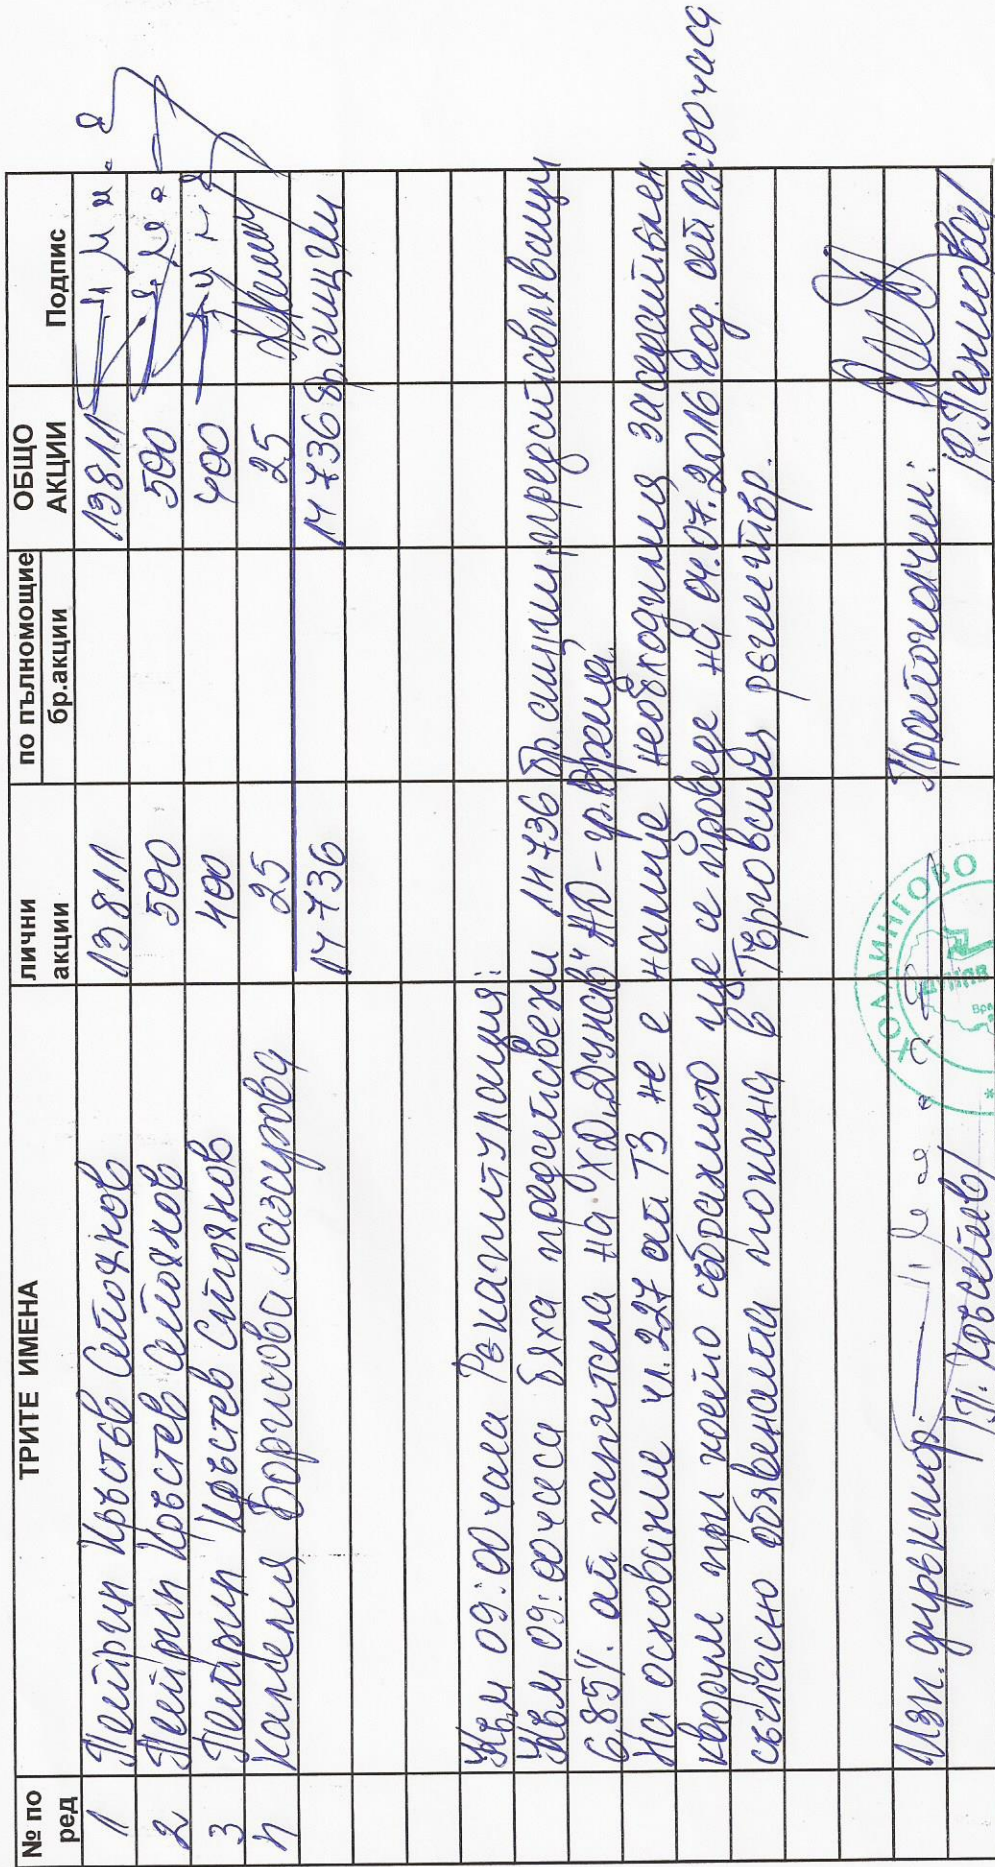 № по ред ТРИТЕ ИМЕНА лични акции по пълномощие бр.акции ОБЩО АКЦИИ Подпис
1 Петрин Кръстев Стоянов 13811 13811
2 Петрин Кръстев Стоянов 500 500
3 Петрин Кръстев Стоянов 400 400
4 Камелия Борисова Лазарова 25 25
14 736 14 736 бр. акции
Към 09:00 часа Рекапитулация:
Към 09:00 часа бяха представени 14736 бр. акции, представляващи
6,85% от капитала на ХД „Дунав" АД - гр. Враца.
На основание чл. 227 от ТЗ не е налице необходимия законоустановен
кворум при което събранието ще се проведе на 04.07.2016 год. от 09:00 часа
съгласно обявената покана в Търговския регистър.
Изп. директор: Протоколчик:
/П. Кръстев/
ХОЛДИНГОВО